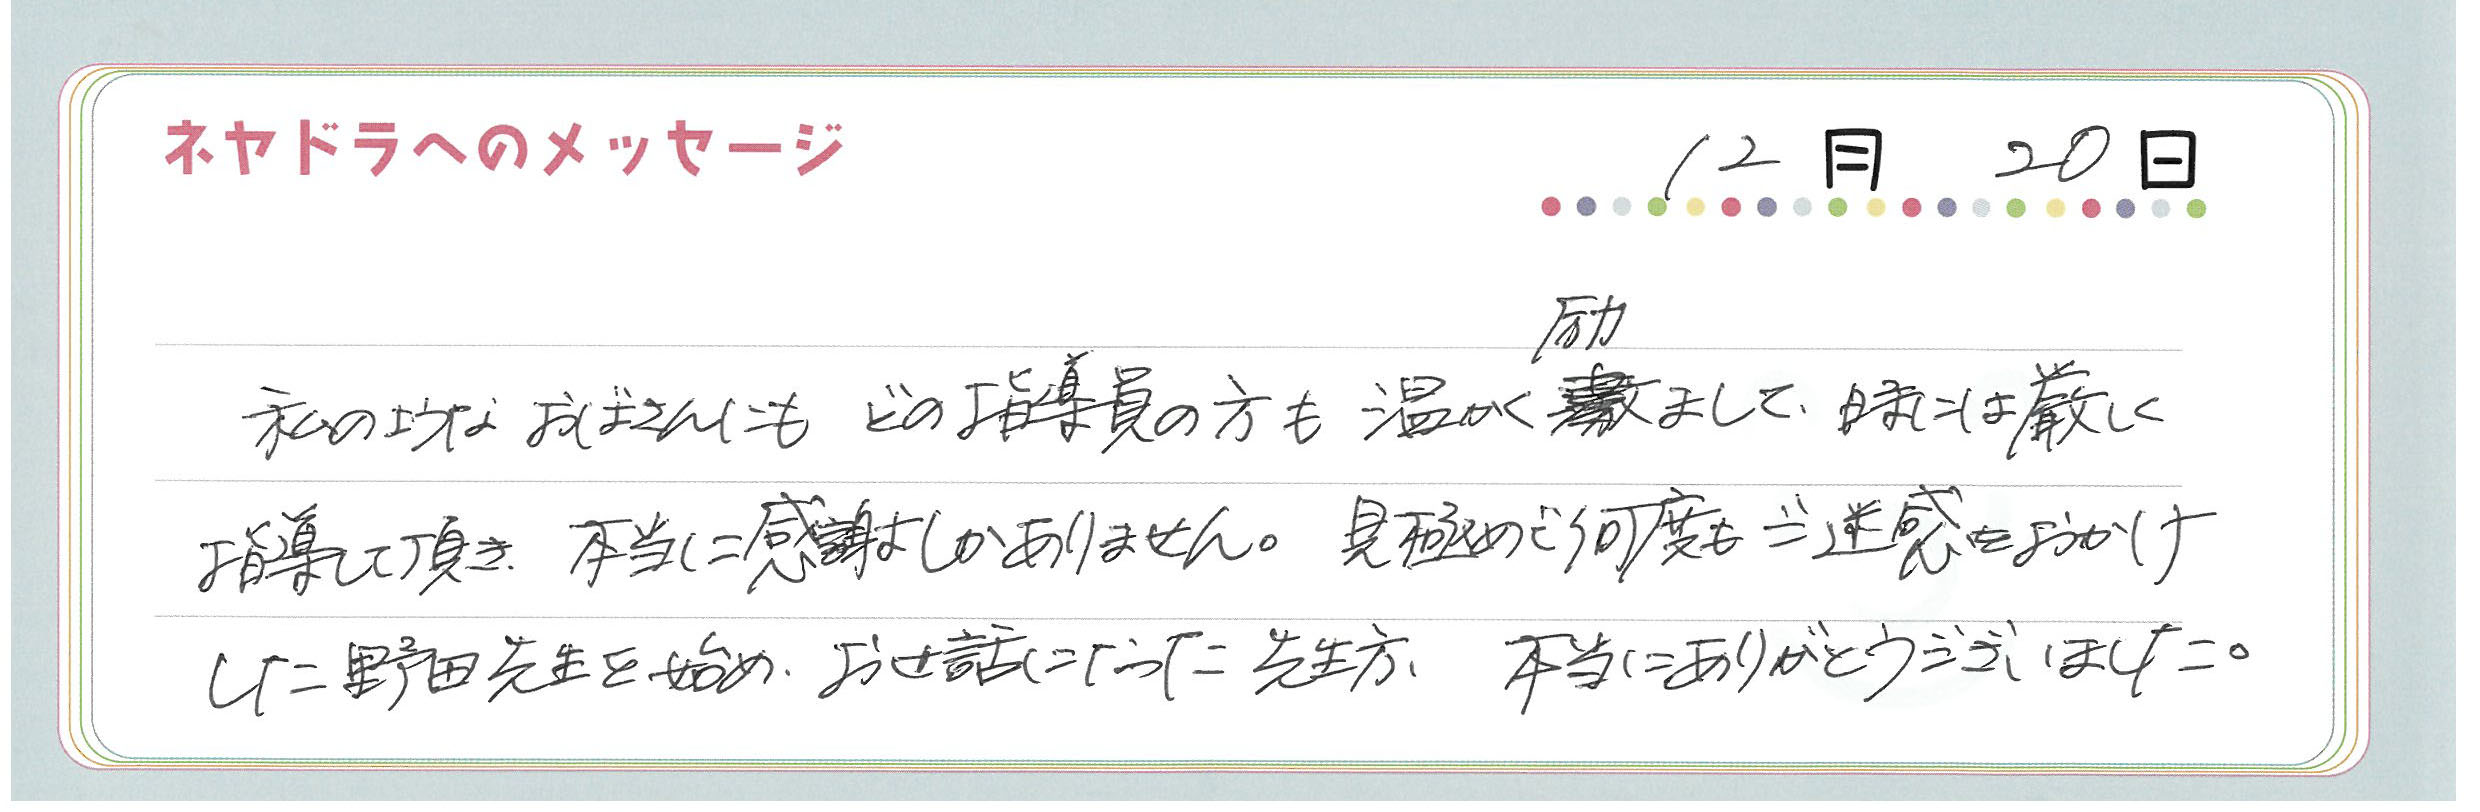 ネヤドラへのメッセージ
12月 20日
私の様なおばさんにも どの指導員の方も 温かく励まして、時には厳しく
指導して頂き、本当に感謝しかありません。見極めで何度もご迷惑をおかけ
した野田先生を始め、お世話になった先生方、本当にありがとうございました。